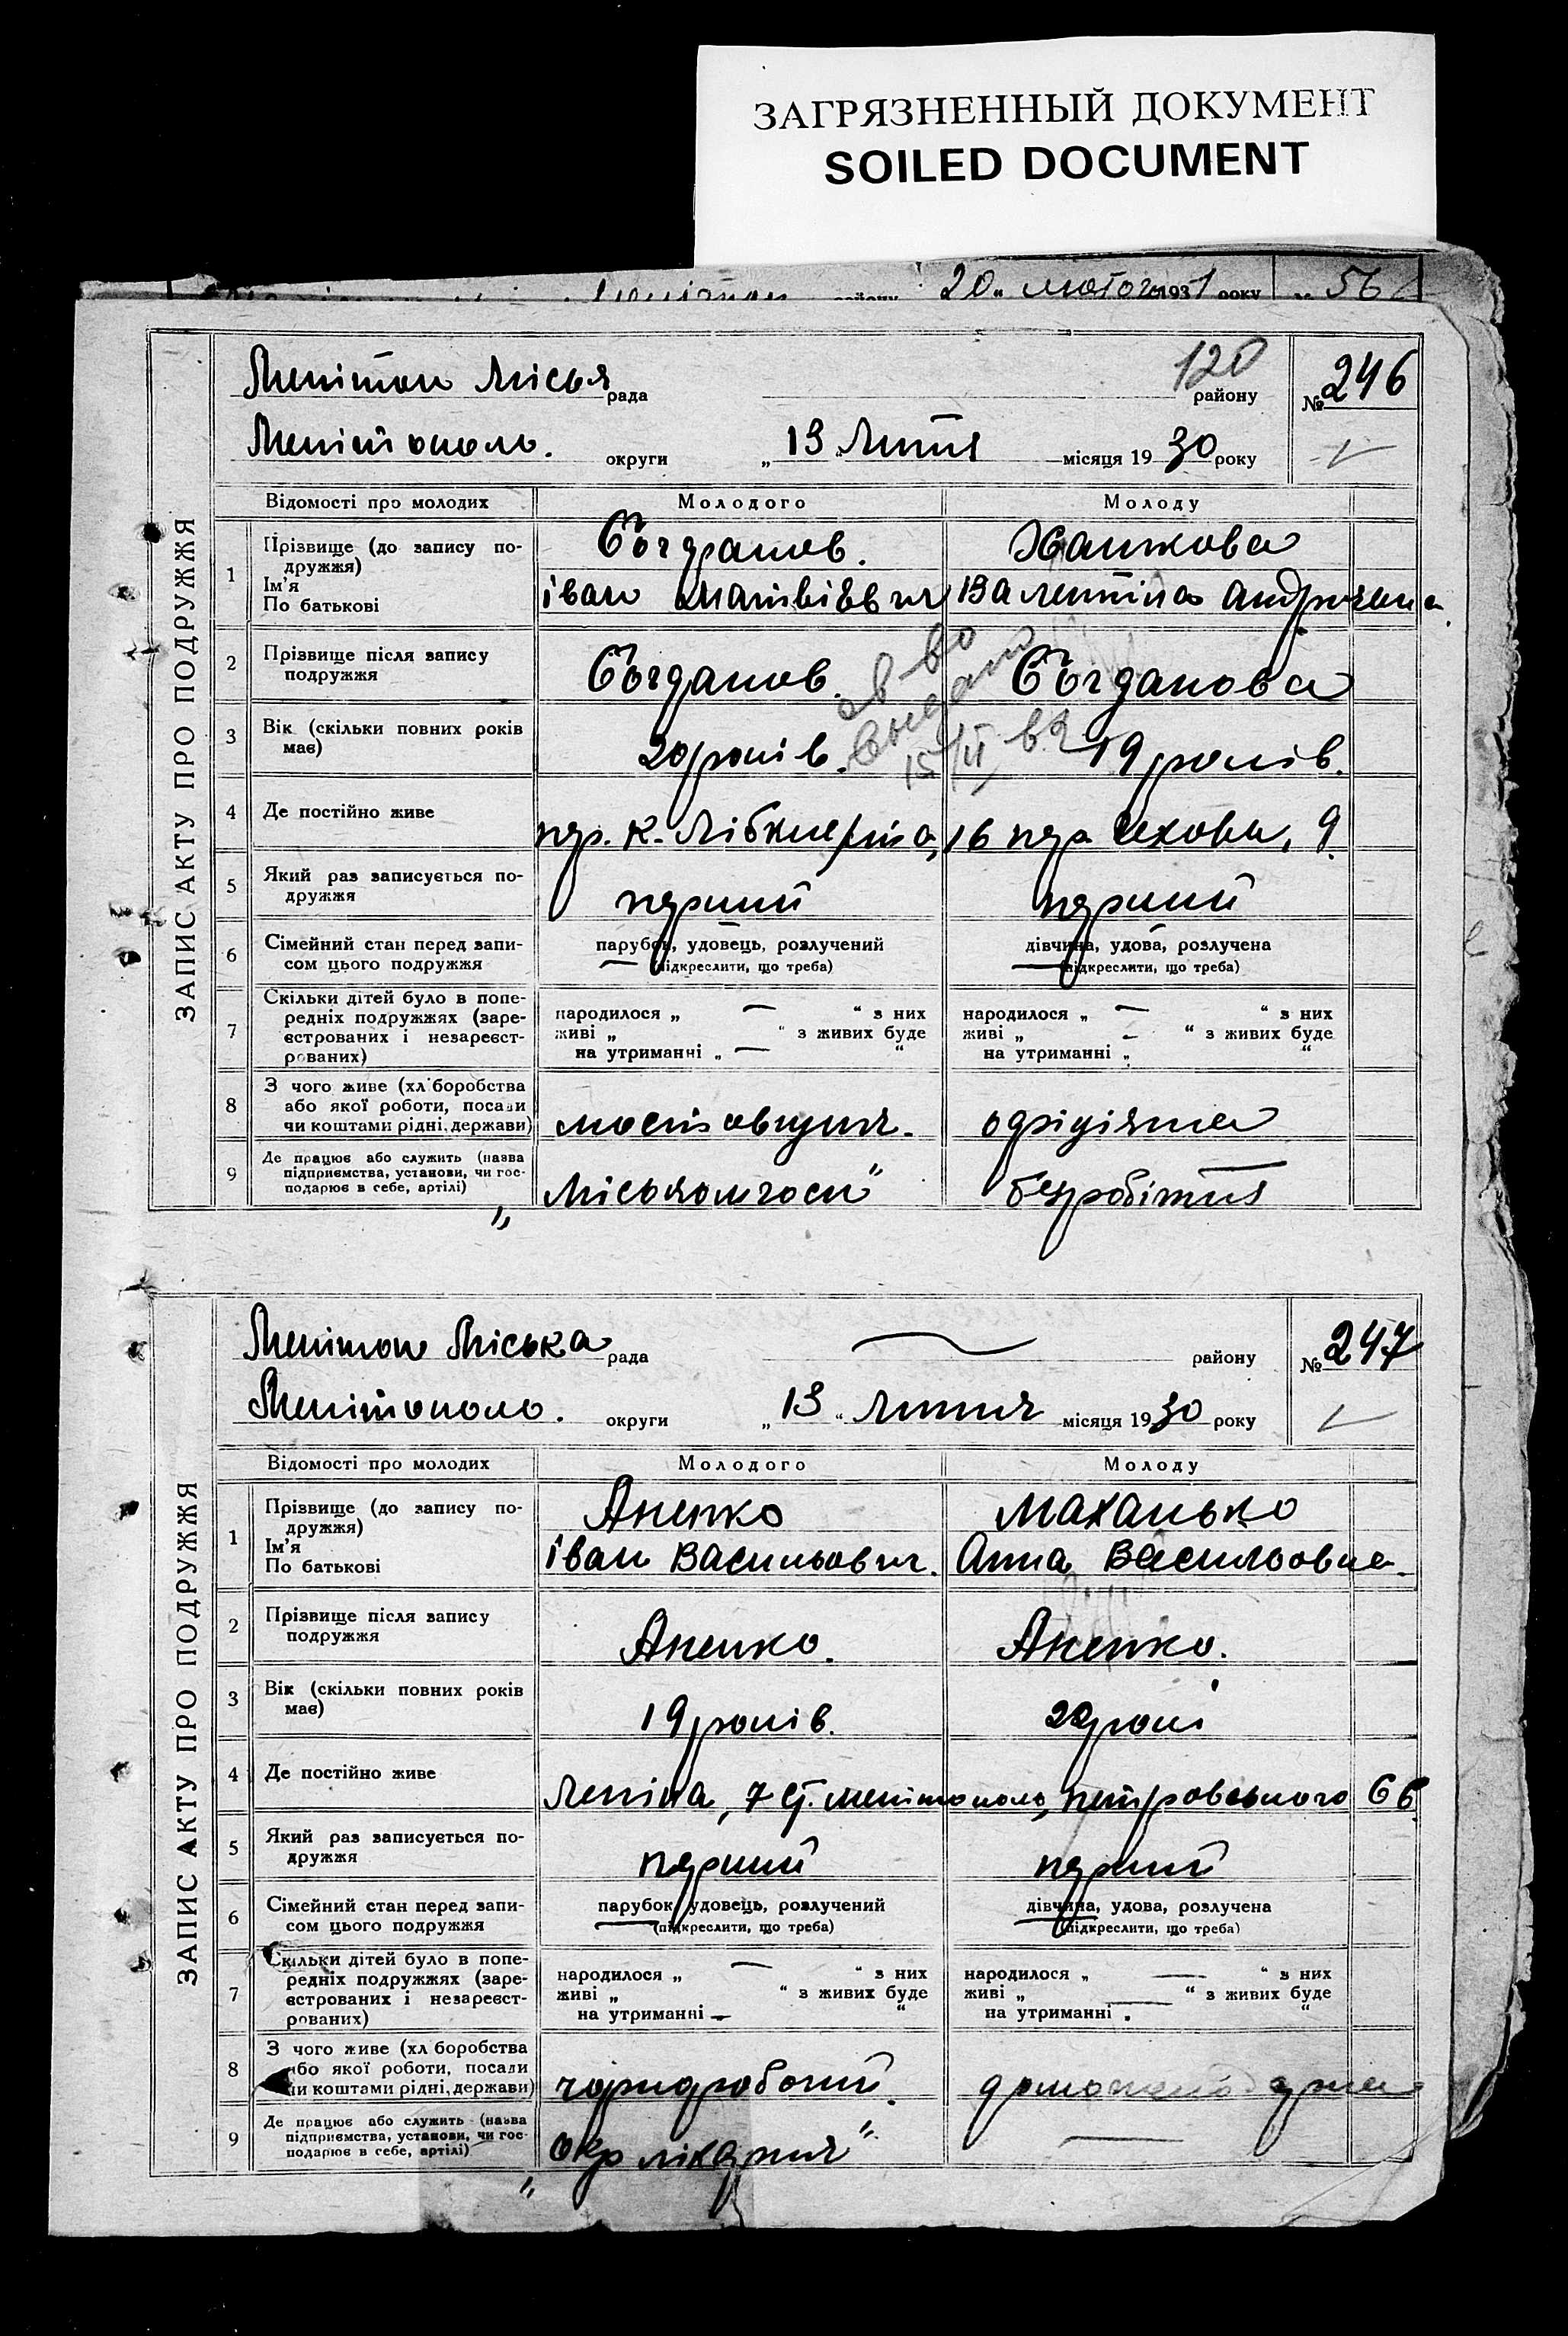 ЗАГРЯЗНЕННЫЙ ДОКУМЕНТ
SOILED DOCUMENT
20 лютого 1931 року 56
ЗАПИС АКТУ ПРО ПОДРУЖЖЯ
Меліτοп Міськ рада 120 району № 246
Мелітополь. округи „ 13 Липня місяця 1930 року
Відомості про молодих Молодого Молоду
1 Прізвище (до запису по-
дружжя)
Ім'я
По батькові
Богданов. Ханжова
Іван Матвієвич Валентіна Андріївна
2 Прізвище після запису
подружжя
Богданов. Богданова
св-во
выдано
15/II
3 Вік (скільки повних років
має)
20 років. 19 років.
4 Де постійно живе
пр. К. Лібкнехта, 16 Чехова, 9.
5 Який раз записується по-
дружжя
перший перший
6 Сімейний стан перед запи-
сом цього подружжя
парубок, удовець, розлучений
(підкреслити, що треба)
дівчина, удова, розлучена
(підкреслити, що треба)
7 Скільки дітей було в попе-
редніх подружжях (заре-
єстрованих і незареєст-
рованих)
народилося „ — “ з них
живі „ “ з живих буде
на утриманні „ — “
народилося „ — “ з них
живі „ - “ з живих буде
на утриманні „ “
8 З чого живе (хліборобства
або якої роботи, посади
чи коштами рідні, держави)
мостовщик. офіціянка
9 Де працює або служить (назва
підприємства, установи, чи гос-
подарює в себе, артілі)
„Міськомгосп“ безробітня
ЗАПИС АКТУ ПРО ПОДРУЖЖЯ
Меліτοп Міська рада — району № 247
Мелітополь. округи „ 13 “ Липня місяця 1930 року
Відомості про молодих Молодого Молоду
1 Прізвище (до запису по-
дружжя)
Ім'я
По батькові
Маханько
Іван Васильович. Анна Васильовна.
2 Прізвище після запису
подружжя
3 Вік (скільки повних років
має)
19 років.
4 Де постійно живе
Леніна, 7 ст. Мелітополь, Петровського 66
5 Який раз записується по-
дружжя
перший перший
6 Сімейний стан перед запи-
сом цього подружжя
парубок, удовець, розлучений
(підкреслити, що треба)
дівчина, удова, розлучена
(підкреслити, що треба)
7 Скільки дітей було в попе-
редніх подружжях (заре-
єстрованих і незареєст-
рованих)
народилося „ — “ з них
живі „ “ з живих буде
на утриманні — “
народилося „ — “ з них
живі „ — “ з живих буде
на утриманні . “
8 З чого живе (хліборобства
або якої роботи, посади
чи коштами рідні, держави)
чорноробочий.
9 Де працює або служить (назва
підприємства, установи, чи гос-
подарює в себе, артілі)
„Окр лікарня“ —